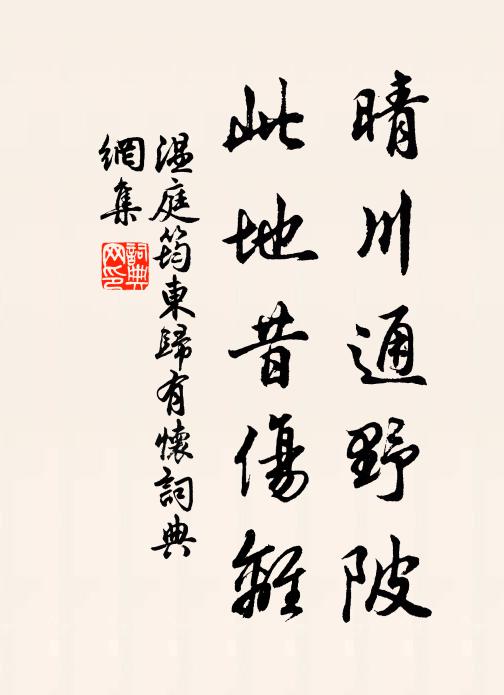 晴川通野陂
此地昔傷離
温庭筠東歸有懷詞典
網集
詞典
网印